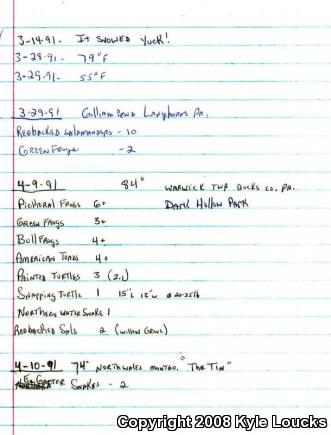 3-14-91 - IT SNOWED YUCK!
3-28-91 - 79°F
3-29-91 - 55°F
3-29-91 Langhorne PA.
REDBACKED SALAMANDERS - 10
GREEN Frogs - 2
4-9-91 84° WARWICK TWP BUCKS CO. PA.
PICKERAL FROGS 6+ DARK HOLLOW PARK
GREEN FROGS 3+
BULLFROGS 4+
AMERICAN TOADS 4+
PAINTED TURTLES 3 (2.1)
SNAPPING TURTLE 1 15"L 12"W @ 20-25lb
NORTHERN WATER SNAKE 1
REDBACKED SALS 2
4-10-91 74° NORTH WALES MONTGO. "THE TIN"
GARTER SNAKES - 2
Copyright 2008 Kyle Loucks